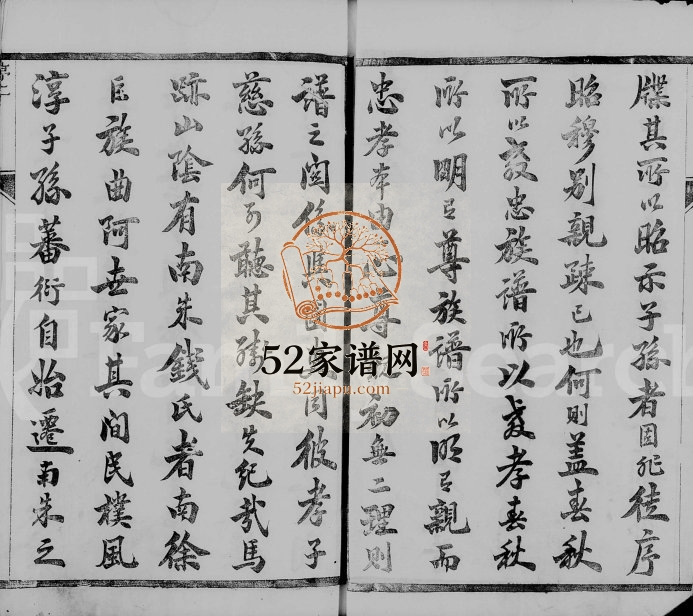 牒其所以昭示子孫者固非徒序
昭穆别親疎已也何則蓋春秋
所以教忠族譜所以教孝春秋
所以明君尊族譜所以明君親而
忠孝本由
初無二理則
譜之関係
固彼孝子
慈孫何可聽其殘缺失紀哉馬
跡山陰有南朱錢氏者南徐
巨族曲阿世家其间民樸風
淳子孫蕃衍自始遷南朱之
52家谱网
52jiapu.com